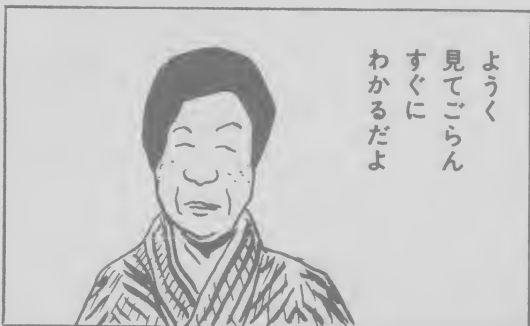 ようく
見てごらん
すぐに
わかるだよ